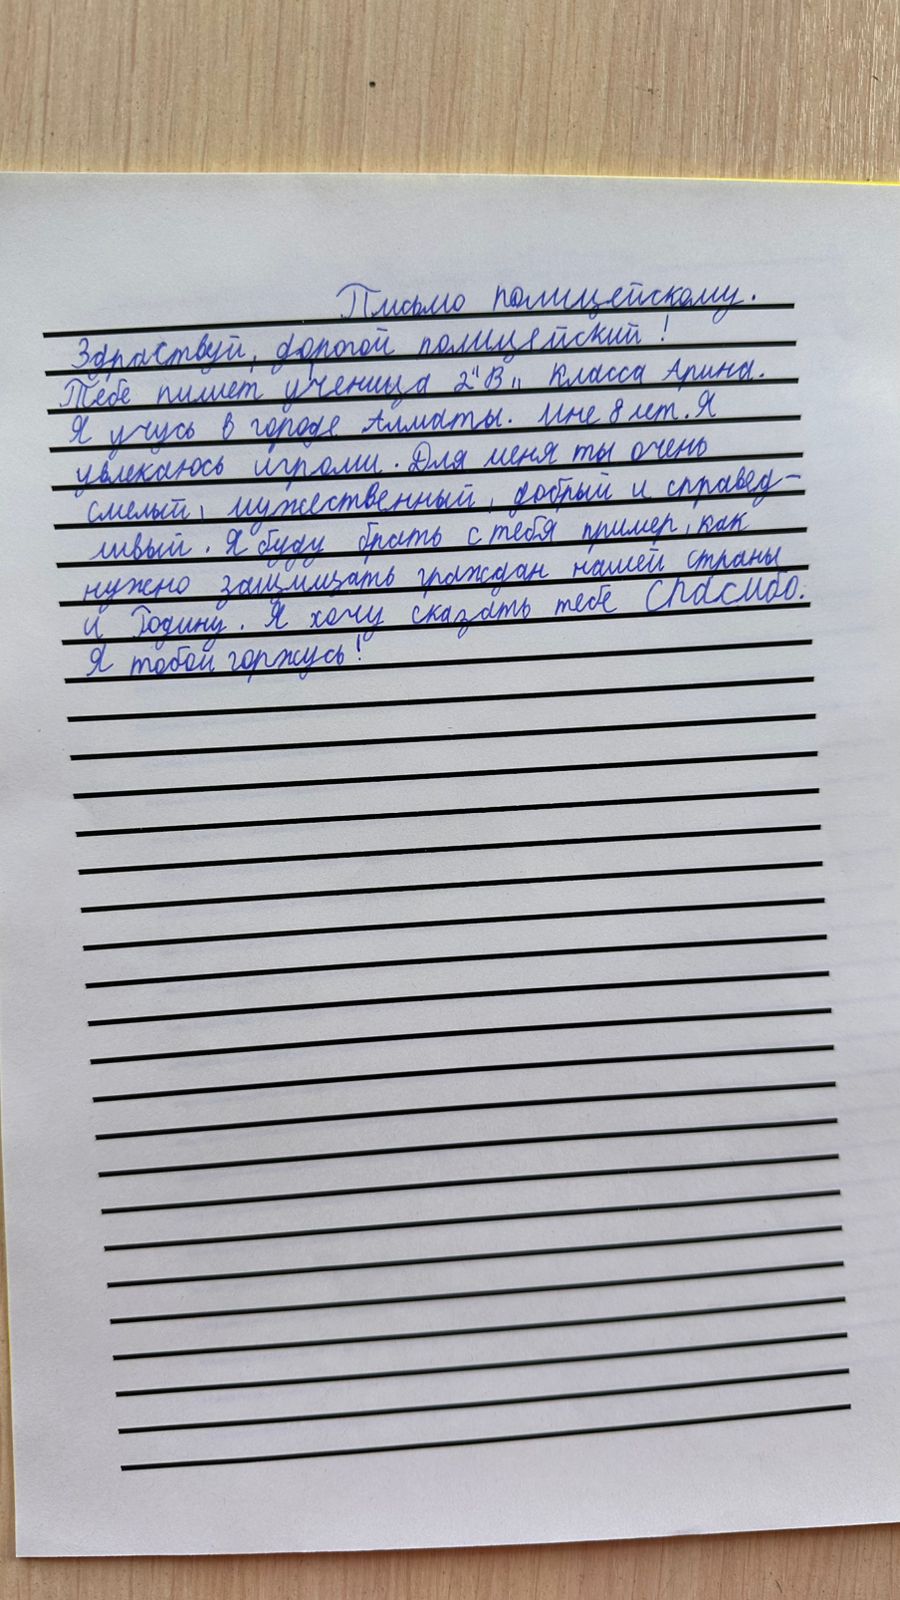 Письмо полицейскому.
Здраствуй, дорогой полицейский!
Тебе пишет ученица 2"В„ класса Арина.
Я учусь в городе Алматы. Мне 8 лет. Я
увлекаюсь играми. Для меня ты очень
смелый, мужественный, добрый и справед-
ливый. Я буду брать с тебя пример, как
нужно защищать граждан нашей страны
и Родину. Я хочу сказать тебе спасибо.
Я тобой горжусь!